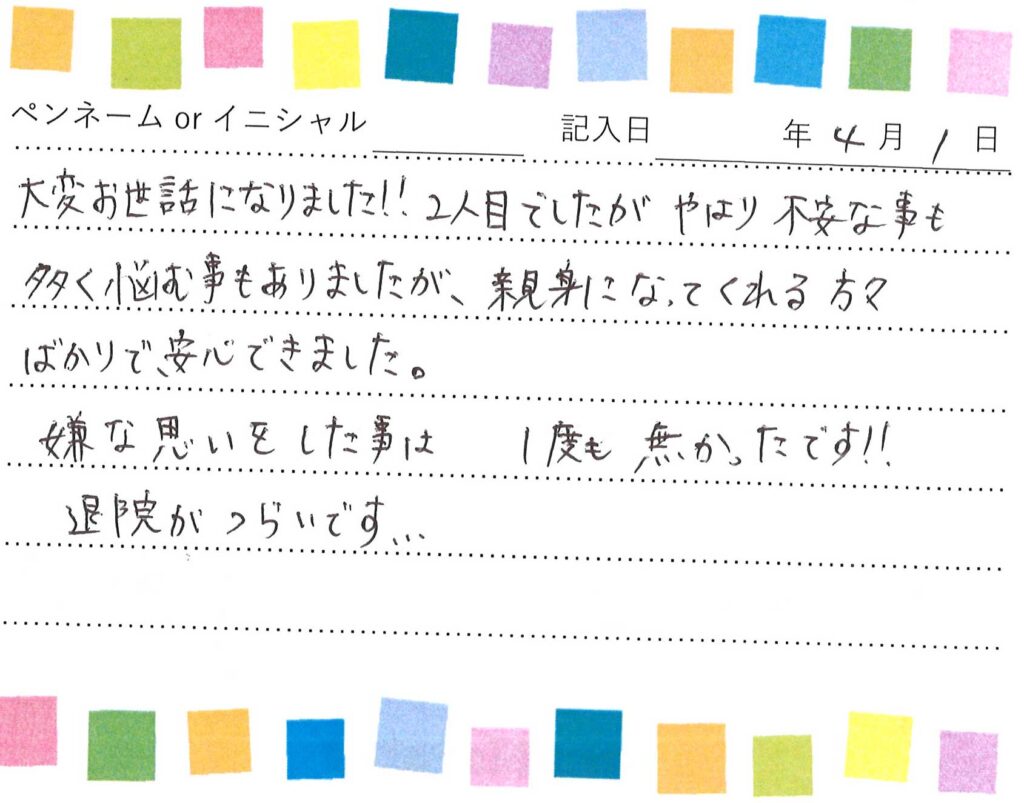 ペンネーム or イニシャル 記入日 年 4 月 1 日
大変お世話になりました!! 2人目でしたが やはり 不安な事も
多く悩む事もありましたが、親身になってくれる 方々
ばかりで、安心できました。
嫌な思いをした事は 1度も 無かったです!!
退院が つらいです...